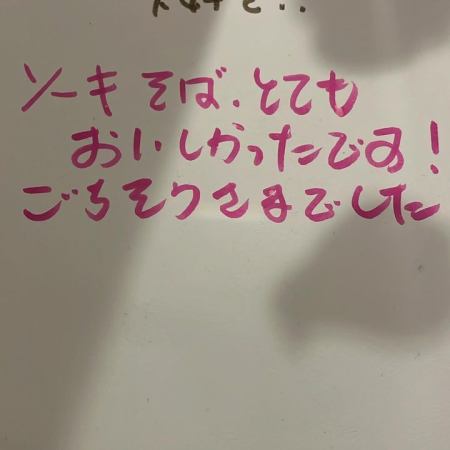 ソーキそば、とても
おいしかったです！
ごちそうさまでした